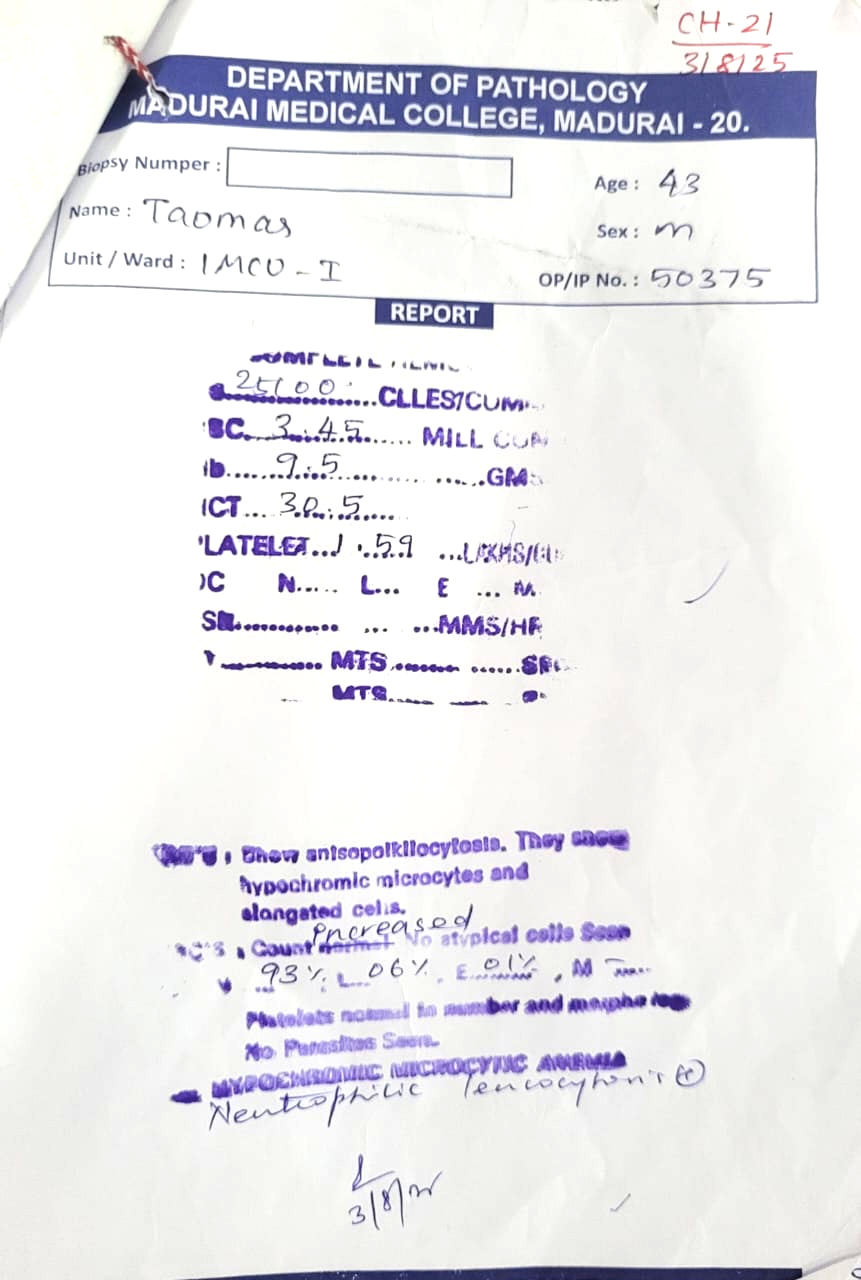 CH-21
3/8/25
DEPARTMENT OF PATHOLOGY
MADURAI MEDICAL COLLEGE, MADURAI - 20.
Biopsy Numper :
Age : 43
Name : Taomas
Sex : m
Unit / Ward : IMCU - I
OP/IP No. : 50375
REPORT
25100 CLLES/CUM
BC. 3.45 MILL CUM
b 9.5 GMS
CT 30.5
LATELET 1.59 LAKHS/CU
DC N L E M
MMS/HR
MTS SEC
MTS
Show anisopoikilocytosis. They show
hypochromic microcytes and
elongated cells.
increased
Count normal No atypical cells Seen
93% L 06%, E 01%, M
Platelets normal in number and morpholog
No Parasites Seen.
HYPOCHROMIC MICROCYTIC ANEMIA
Neutrophilic leucocytosis (+)
3/8/25